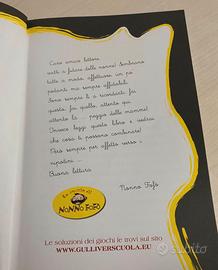 Caro amico lettore,
vuoi a parlare delle nonne! Sembrano
tutte a modo, affettuose, un po'
pedanti ma sempre affidabili.
Sono sempre lì a ricordarti: fai
questo, fai quello, attento qui,
attento là ... peggio delle mamme!
Invece leggi questo libro e vedrai
che cosa ti possono combinare!
Però sempre per affetto verso i
nipotini...
Buona lettura
Nonno Fofò
Le favole di
NONNO FOFÒ
Le soluzioni dei giochi le trovi sul sito
WWW.GULLIVERSCUOLA.EU
subito